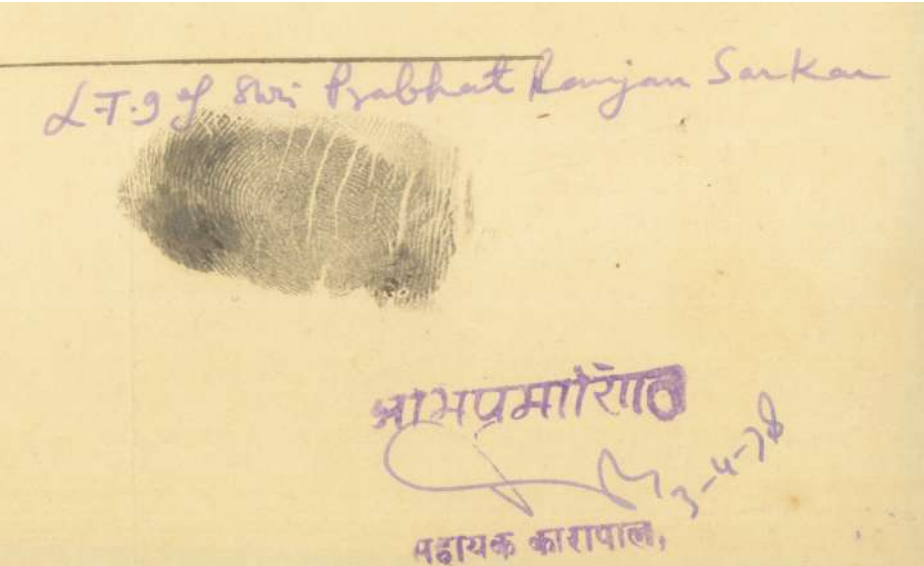 L.T.I of Shri Prabhat Ranjan Sarkar
अभिप्रमाणित
3-4-78
सहायक कारापाल,